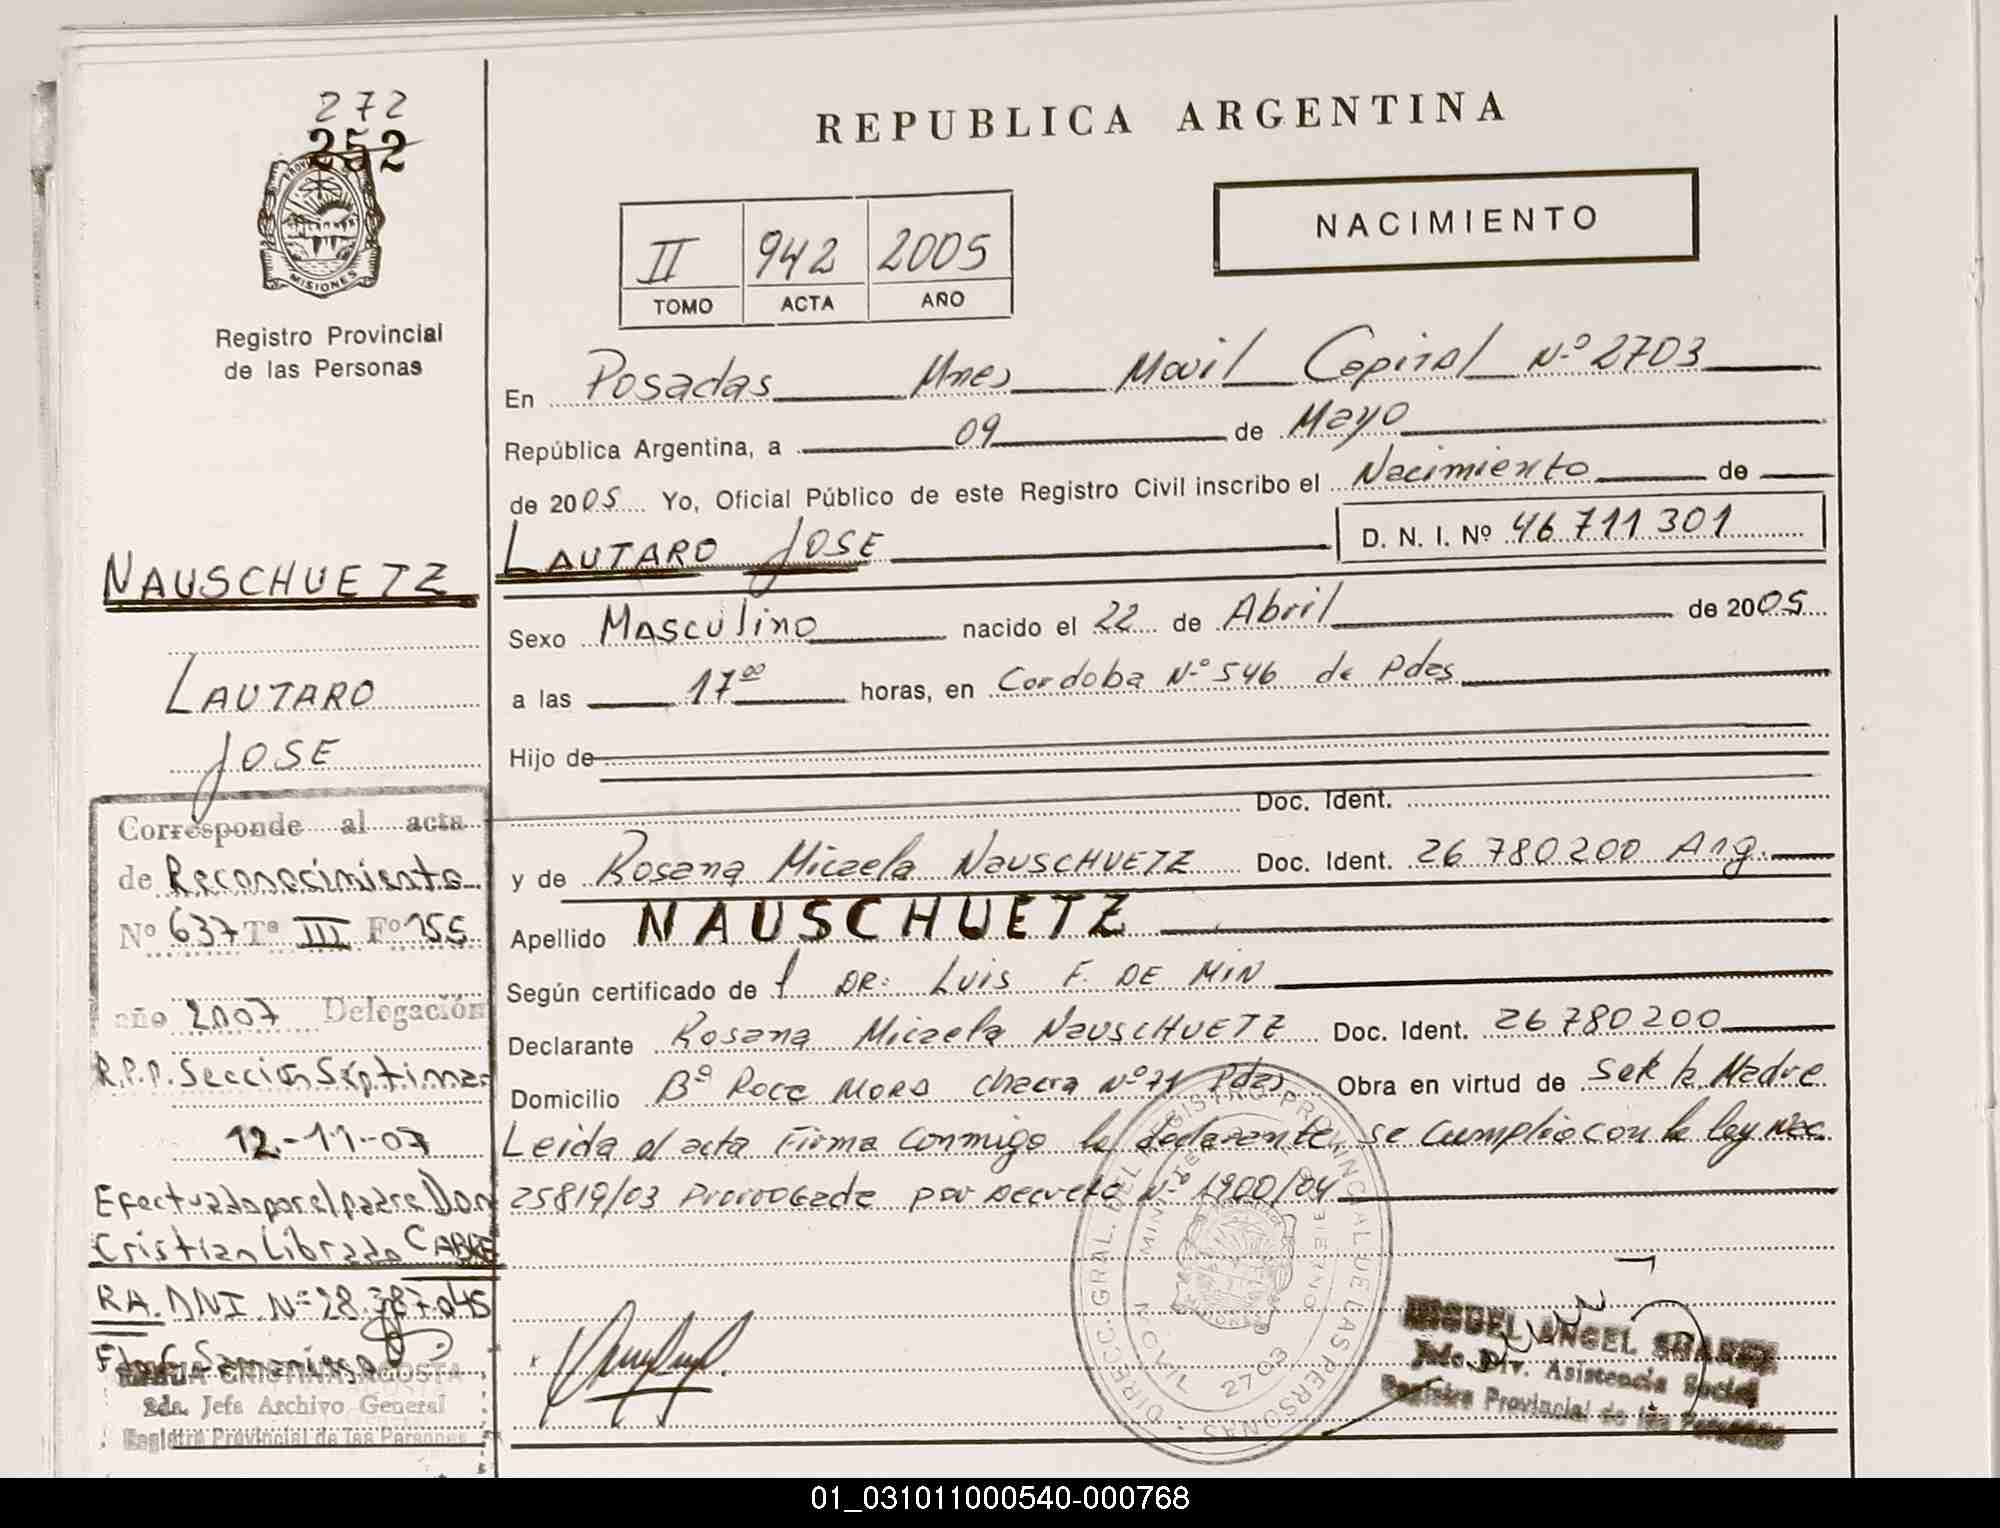 272
252
MISIONES
Registro Provincial
de las Personas
NAUSCHUETZ
LAUTARO
JOSE
Corresponde al acta
de Reconocimiento
Nº 637 Tº III Fº 155
año 2007 Delegación
R.P.P. Sección Séptima
12-11-07
Efectuada por el padre Don
Cristian Librado CABRE
RA. DNI. Nº 28.387.045
MARIA CRISTINA ACOSTA
2da. Jefa Archivo General
Registro Provincial de las Personas
REPUBLICA ARGENTINA
NACIMIENTO
II 942 2005
TOMO ACTA AÑO
En Posadas Mnes Movil Capital Nº 2703
República Argentina, a 09 de Mayo
de 2005 Yo, Oficial Público de este Registro Civil inscribo el Nacimiento de
LAUTARO JOSE D. N. I. Nº 46 711 301
Sexo Masculino nacido el 22 de Abril de 2005
a las 17⁰⁰ horas, en Cordoba Nº 546 de Pdas
Hijo de
Doc. Ident.
y de Rosana Micaela NAUSCHUETZ Doc. Ident. 26 780 200 Arg.
Apellido NAUSCHUETZ
Según certificado de f DR: LUIS F. DE MIN
Declarante Rosana Micaela NAUSCHUETZ Doc. Ident. 26 780 200
Domicilio Bº Roca Moro chacra Nº 71 Pdas Obra en virtud de Ser la Madre
Leida el acta Firma conmigo la declarante. se cumplio con la ley Nac.
25819/03 Prorrogada por Decreto Nº 1900/04
DIREC. GRAL. DEL REGISTRO PROVINCIAL DE LAS PERSONAS
MOVIL 2703
MIGUEL ANGEL SUAREZ
Jefe Div. Asistencia Social
Registro Provincial de las Personas
01_031011000540-000768